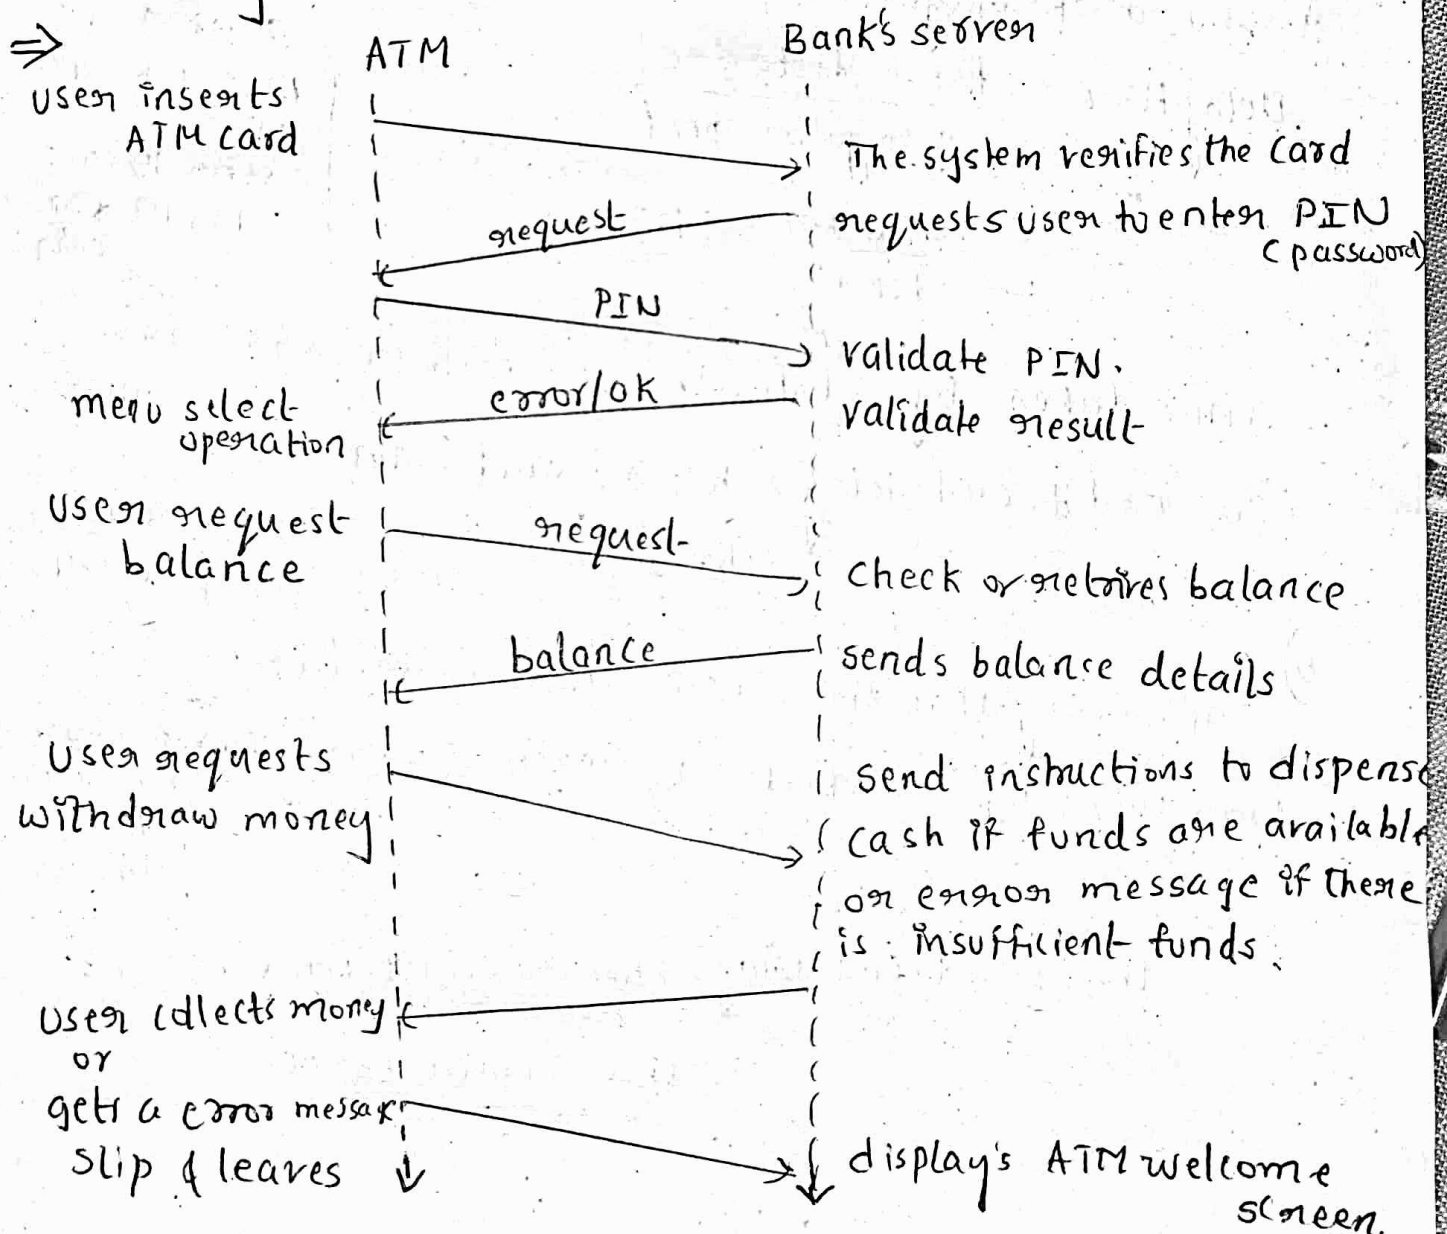 ⇒
ATM
Bank's server
user inserts
ATM card
The system verifies the card
request
requests user to enter PIN
(password)
PIN
validate PIN.
menu select
operation
error/ok
validate result
user request
balance
request
check or retrives balance
balance
sends balance details
User requests
withdraw money
send instructions to dispense
cash if funds are available
or error message if there
is insufficient funds.
user collects money
or
gets a error message
slip & leaves
display's ATM welcome
screen.